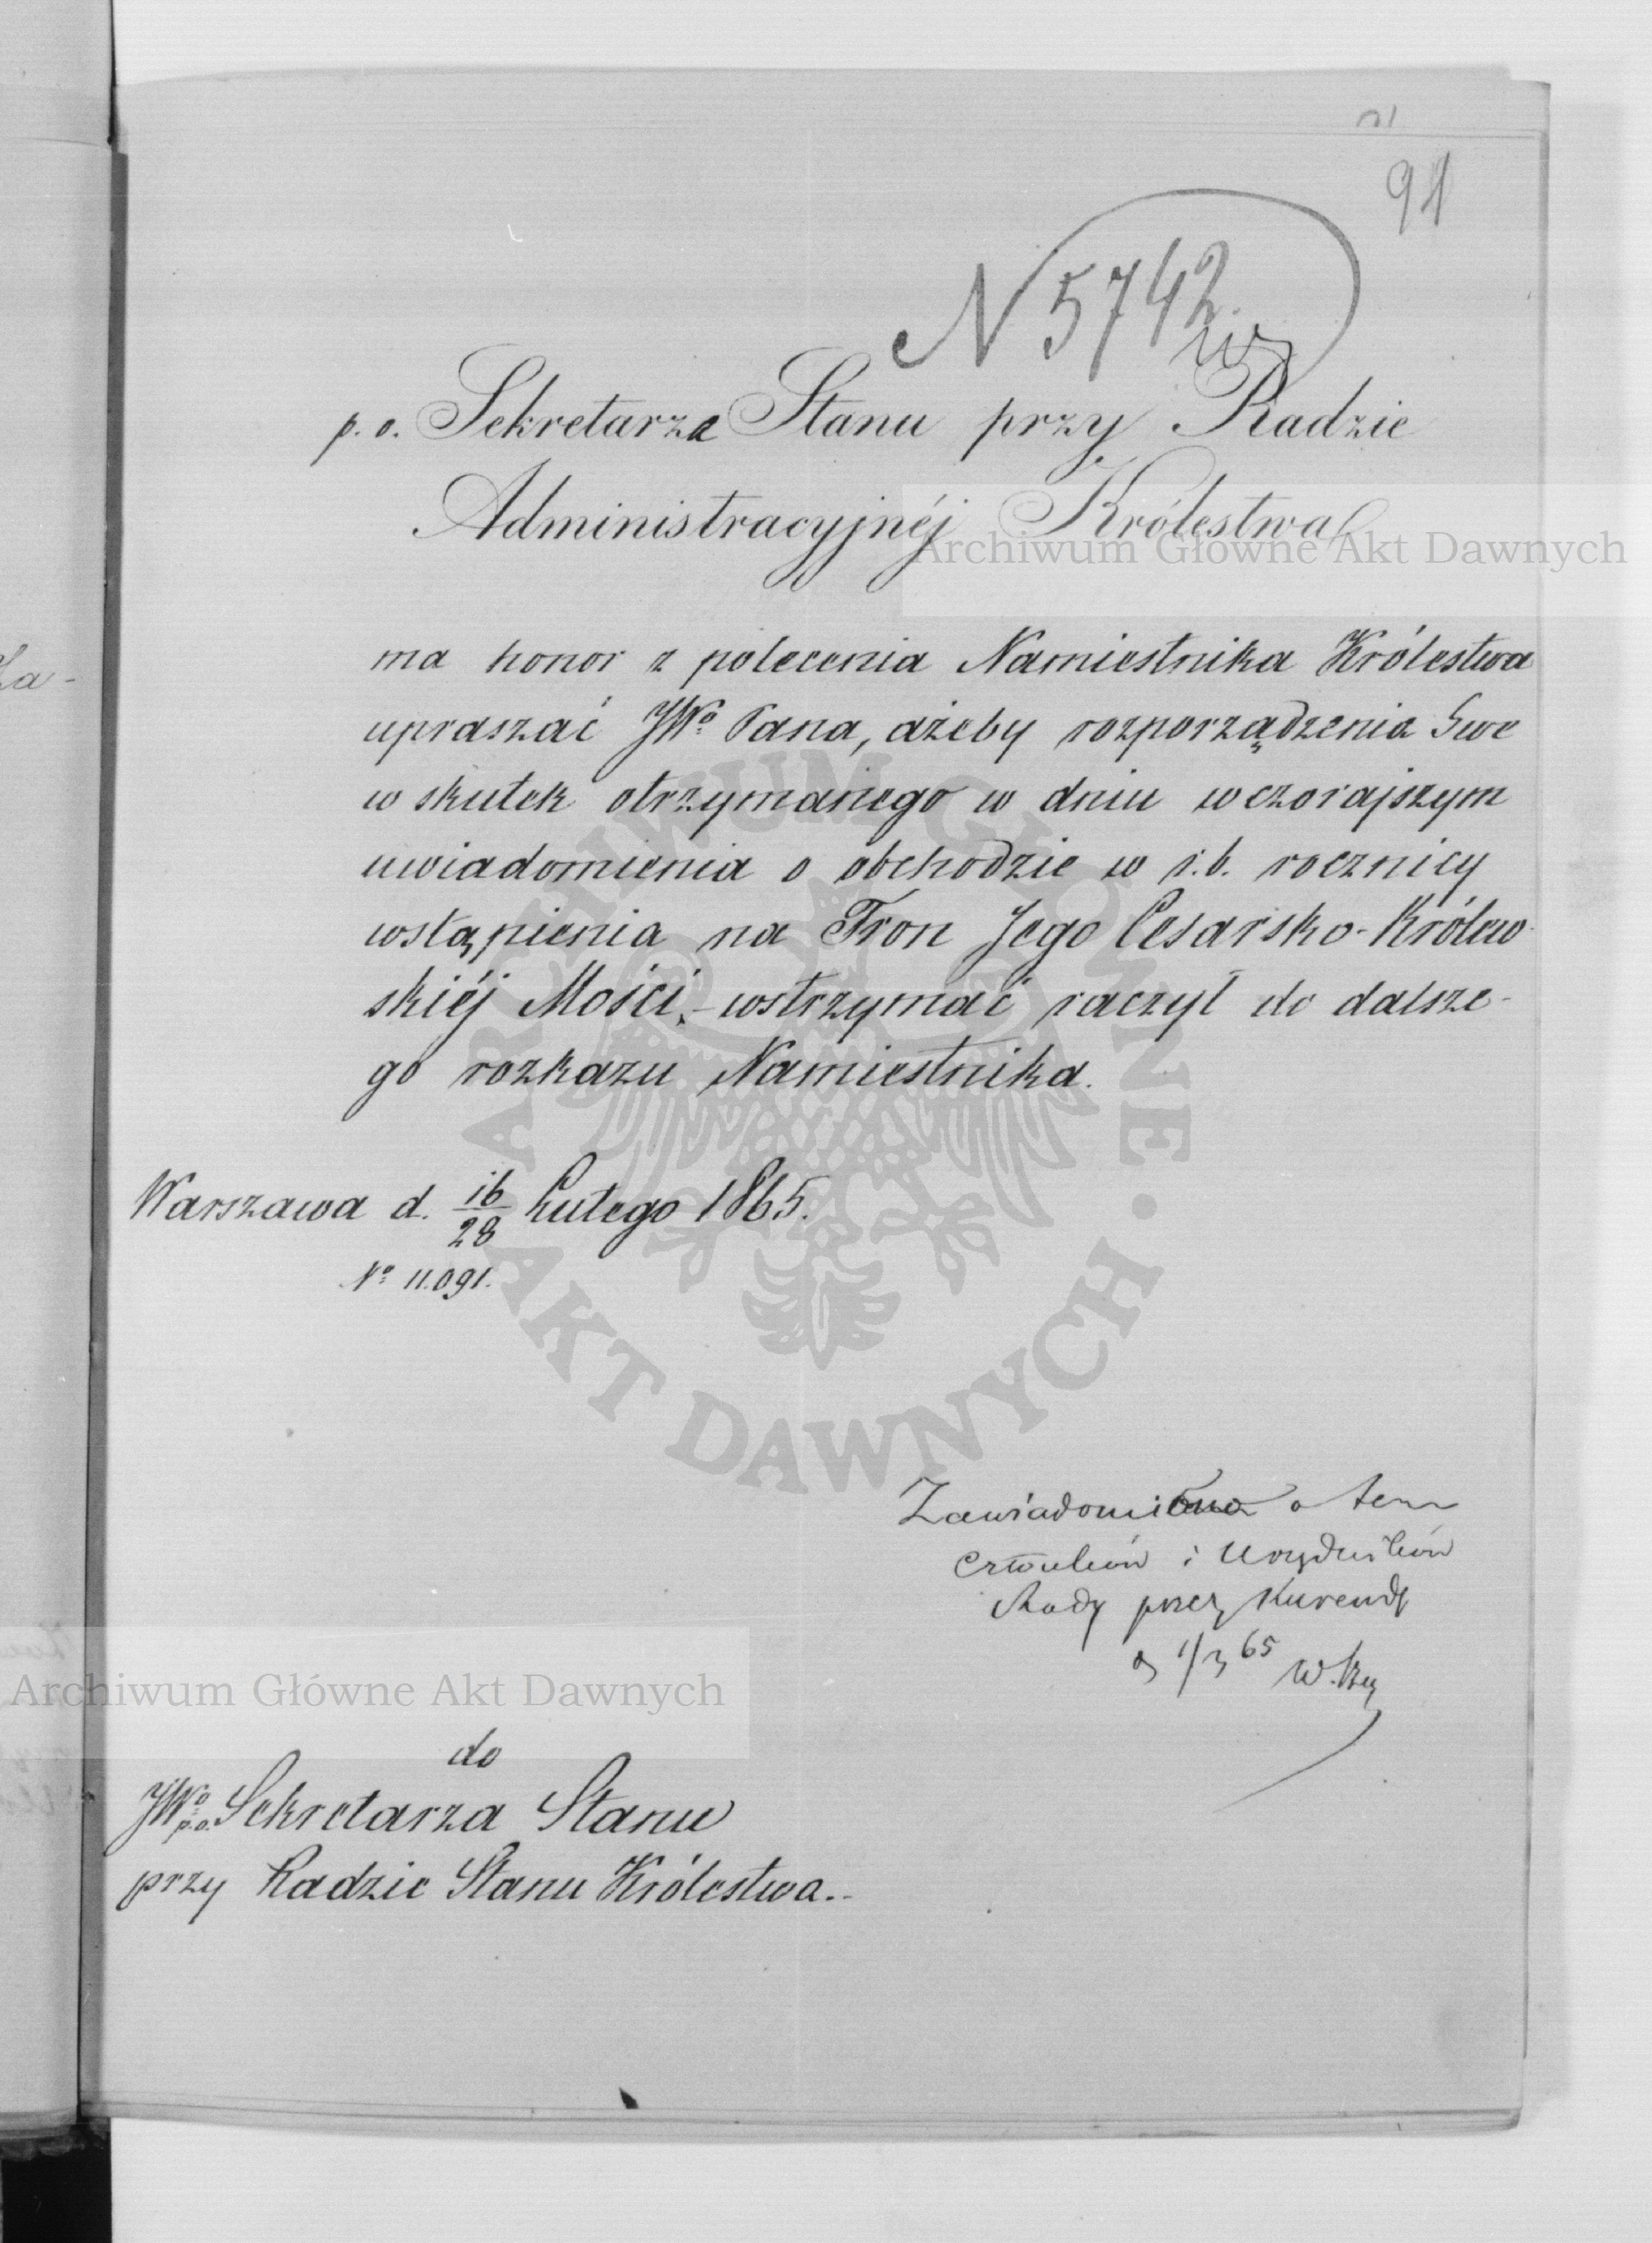 91
N 5742
p. o. Sekretarza Stanu przy Radzie
Administracyjnéj Królestwa
Archiwum Główne Akt Dawnych
ma honor z polecenia Namiestnika Królestwa
upraszać JWº Pana, ażeby rozporządzenia Swe
w skutek otrzymanego w dniu wczorajszym
uwiadomienia o obchodzie w r. b. rocznicy
wstąpienia na Tron Jego Cesarsko-Królew-
skiéj Mości, - wstrzymać raczył do dalsze-
go rozkazu Namiestnika.
ARCHIWUM GŁÓWNE · AKT DAWNYCH ·
Warszawa d. 16/28 Lutego 1865.
Nº 11.091.
Zawiadomiono o tem
członków i Urzędników
Rady przez Kurendę
d 1/3 65
Archiwum Główne Akt Dawnych
do
JWº p.o. Sekretarza Stanu
przy Radzie Stanu Królestwa.
Za-